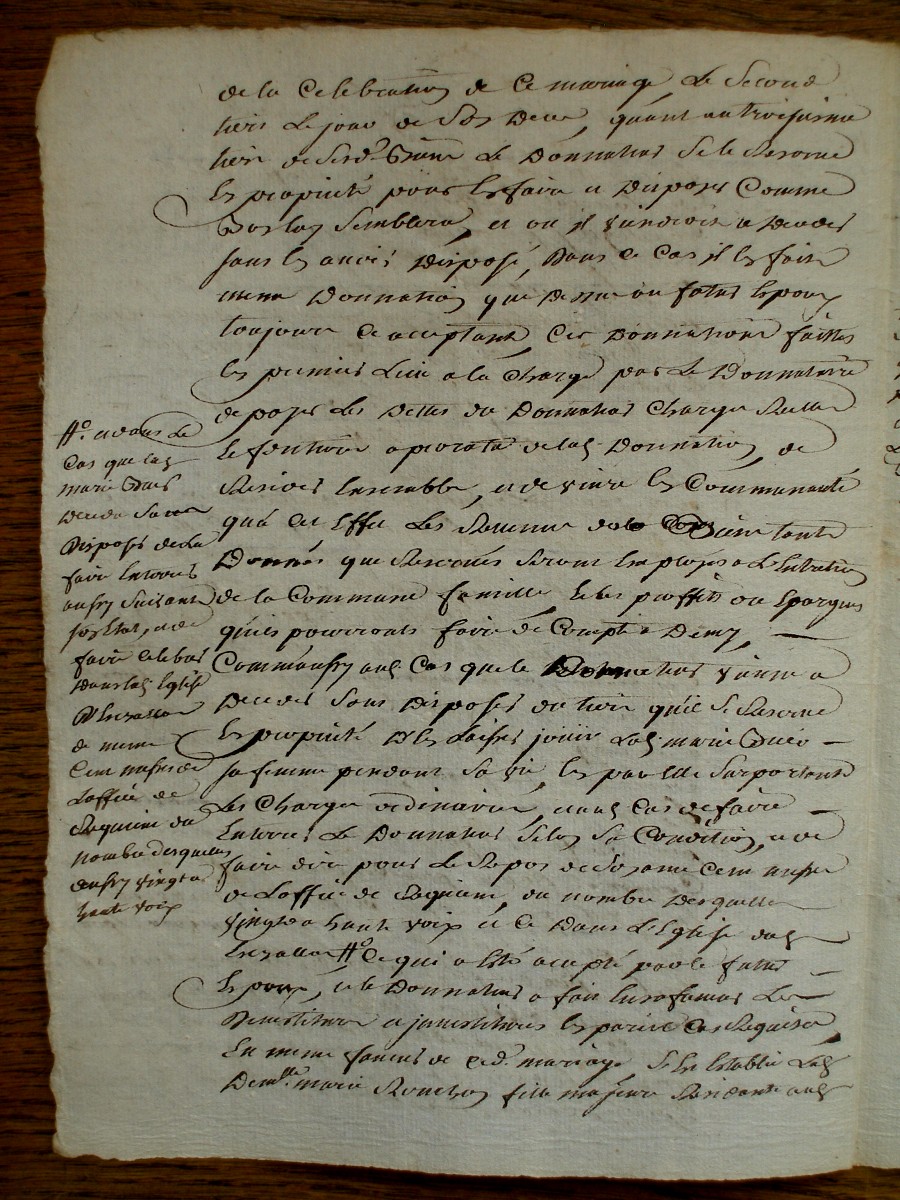 de la Celebration de Ce mariage, Le Second
tiers Le jour de Son Deces, quant au troisieme
tiers de sesd. Biens Le Donnateur Se le Reserve
En propriété pour En faire et Disposer Comme
Bon luy Semblera, et ou il viendroit a Deceder
sans En avoir Disposé, Dans Ce Cas il En fait
meme Donnation que Dessus au futur Epoux
toujours Ce acceptant, Ces Donnations faittes
En premier Lieu a la Charge par Le Donnataire
de payer Les Dettes du Donnateur Charges Reelles
et fontieres a prorata de lad. Donnation, de
Resider Ensemble, et de vivre En Communauté
qu'a Cet Effet Les Revenus de Biens tant
Donnés que Reservés Seront Employés a L'Entretien
de la Commune famille Et les proffits ou Epargnes
qu'ils pourronts faire de Compte a Demy,
Comme aussy aud. Cas que le Donnateur vienne a
Deceder Sans Disposer du tiers qu'il Se Reserve
En propriété De En Laisser jouir Lad. marie
sa femme pendant Sa vie En par Elle Suportant
Les Charges ordinaires, aud. Cas de faire
Enterrer Le Donnateur Selon Sa Condition, et de
faire dire pour Le Repos de Son ame Cent messes
de L'office de Requiem, du nombre Desquelles
vingt a haute voix et Ce Dans L'Eglise dud.
# Ce qui a Eté accepté par le futur
Epoux, et le Donnateur a fait En sa faveur Les
Devestiture et jnvestiture En pareil Cas Requises
En meme faveur de Ced. mariage S'En Establie Lad.
Demlle. marie fille majeure Residante aud.
# et dans Le
Cas que lad.
marie
Deceda Sans
Disposer de La
faire Enterrer
aussy Suivant
son Etat, et de
faire Celebrer
Dans lad. Eglise
de meme
Cent messes de
L'office de
Requiem du
nombre desquelles
aussy vingt a
haute voix